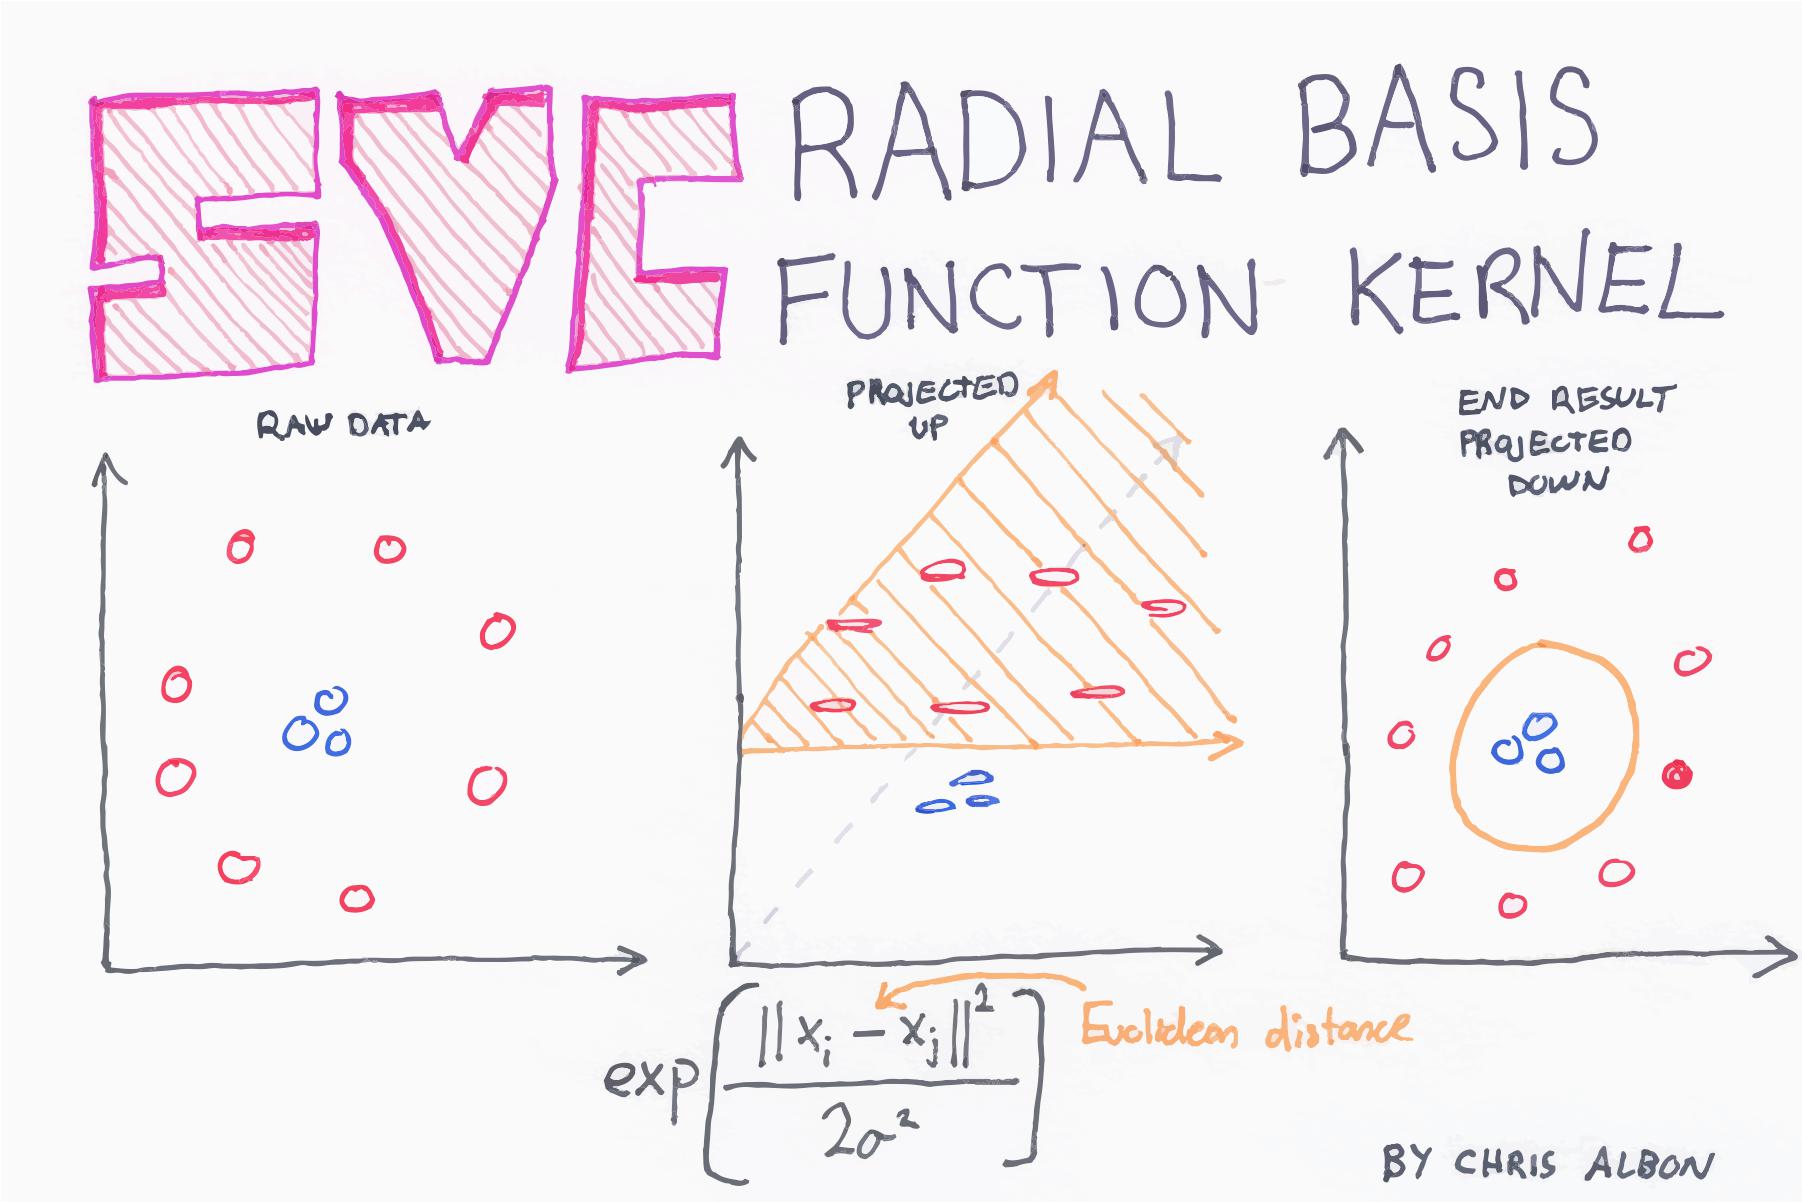 SVC RADIAL BASIS
FUNCTION KERNEL
RAW DATA
PROJECTED
UP
END RESULT
PROJECTED
DOWN
exp[||xᵢ − xⱼ||² / 2σ²]
Euclidean distance
BY CHRIS ALBON